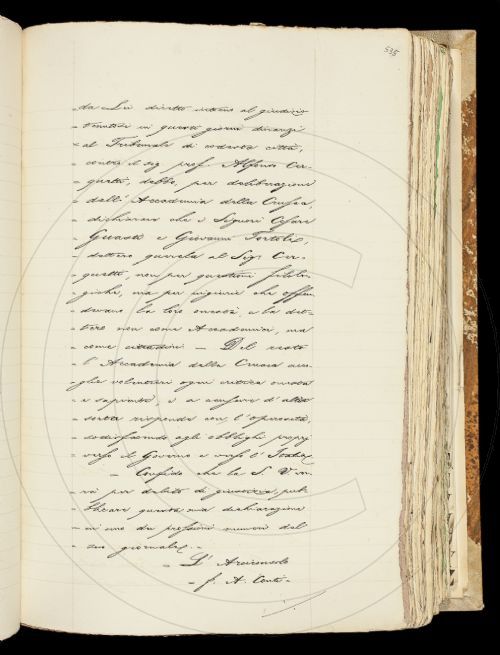 535
da Lei diretto intorno al giudizio
tenutosi in questi giorni dinanzi
al Tribunale di codesta città,
contro il sig. prof. Alfonso Cer-
quetti, debbo, per deliberazione
dell'Accademia della Crusca,
dichiarare che i Signori Cesare
Guasti e Giovanni Tortoli,
dettero querela al Sig. Cer-
quetti, non per questioni filolo-
giche, ma per ingiurie che offen-
devano la loro onestà, e la det-
tero non come Accademici, ma
come cittadini. — Del resto
l'Accademia della Crusca acco-
glie volentieri ogni critica onesta
e sapiente, e a censure d'altra
sorta risponde con l'operosità,
sodisfacendo agli obblighi propri
verso il Governo e verso l'Italia.
— Confido che la S. V. vor-
rà per debito di giustizia, pub-
blicare questa mia dichiarazione
in uno dei prossimi numeri del
suo giornale. —
L'Arciconsolo
f. A. Conti